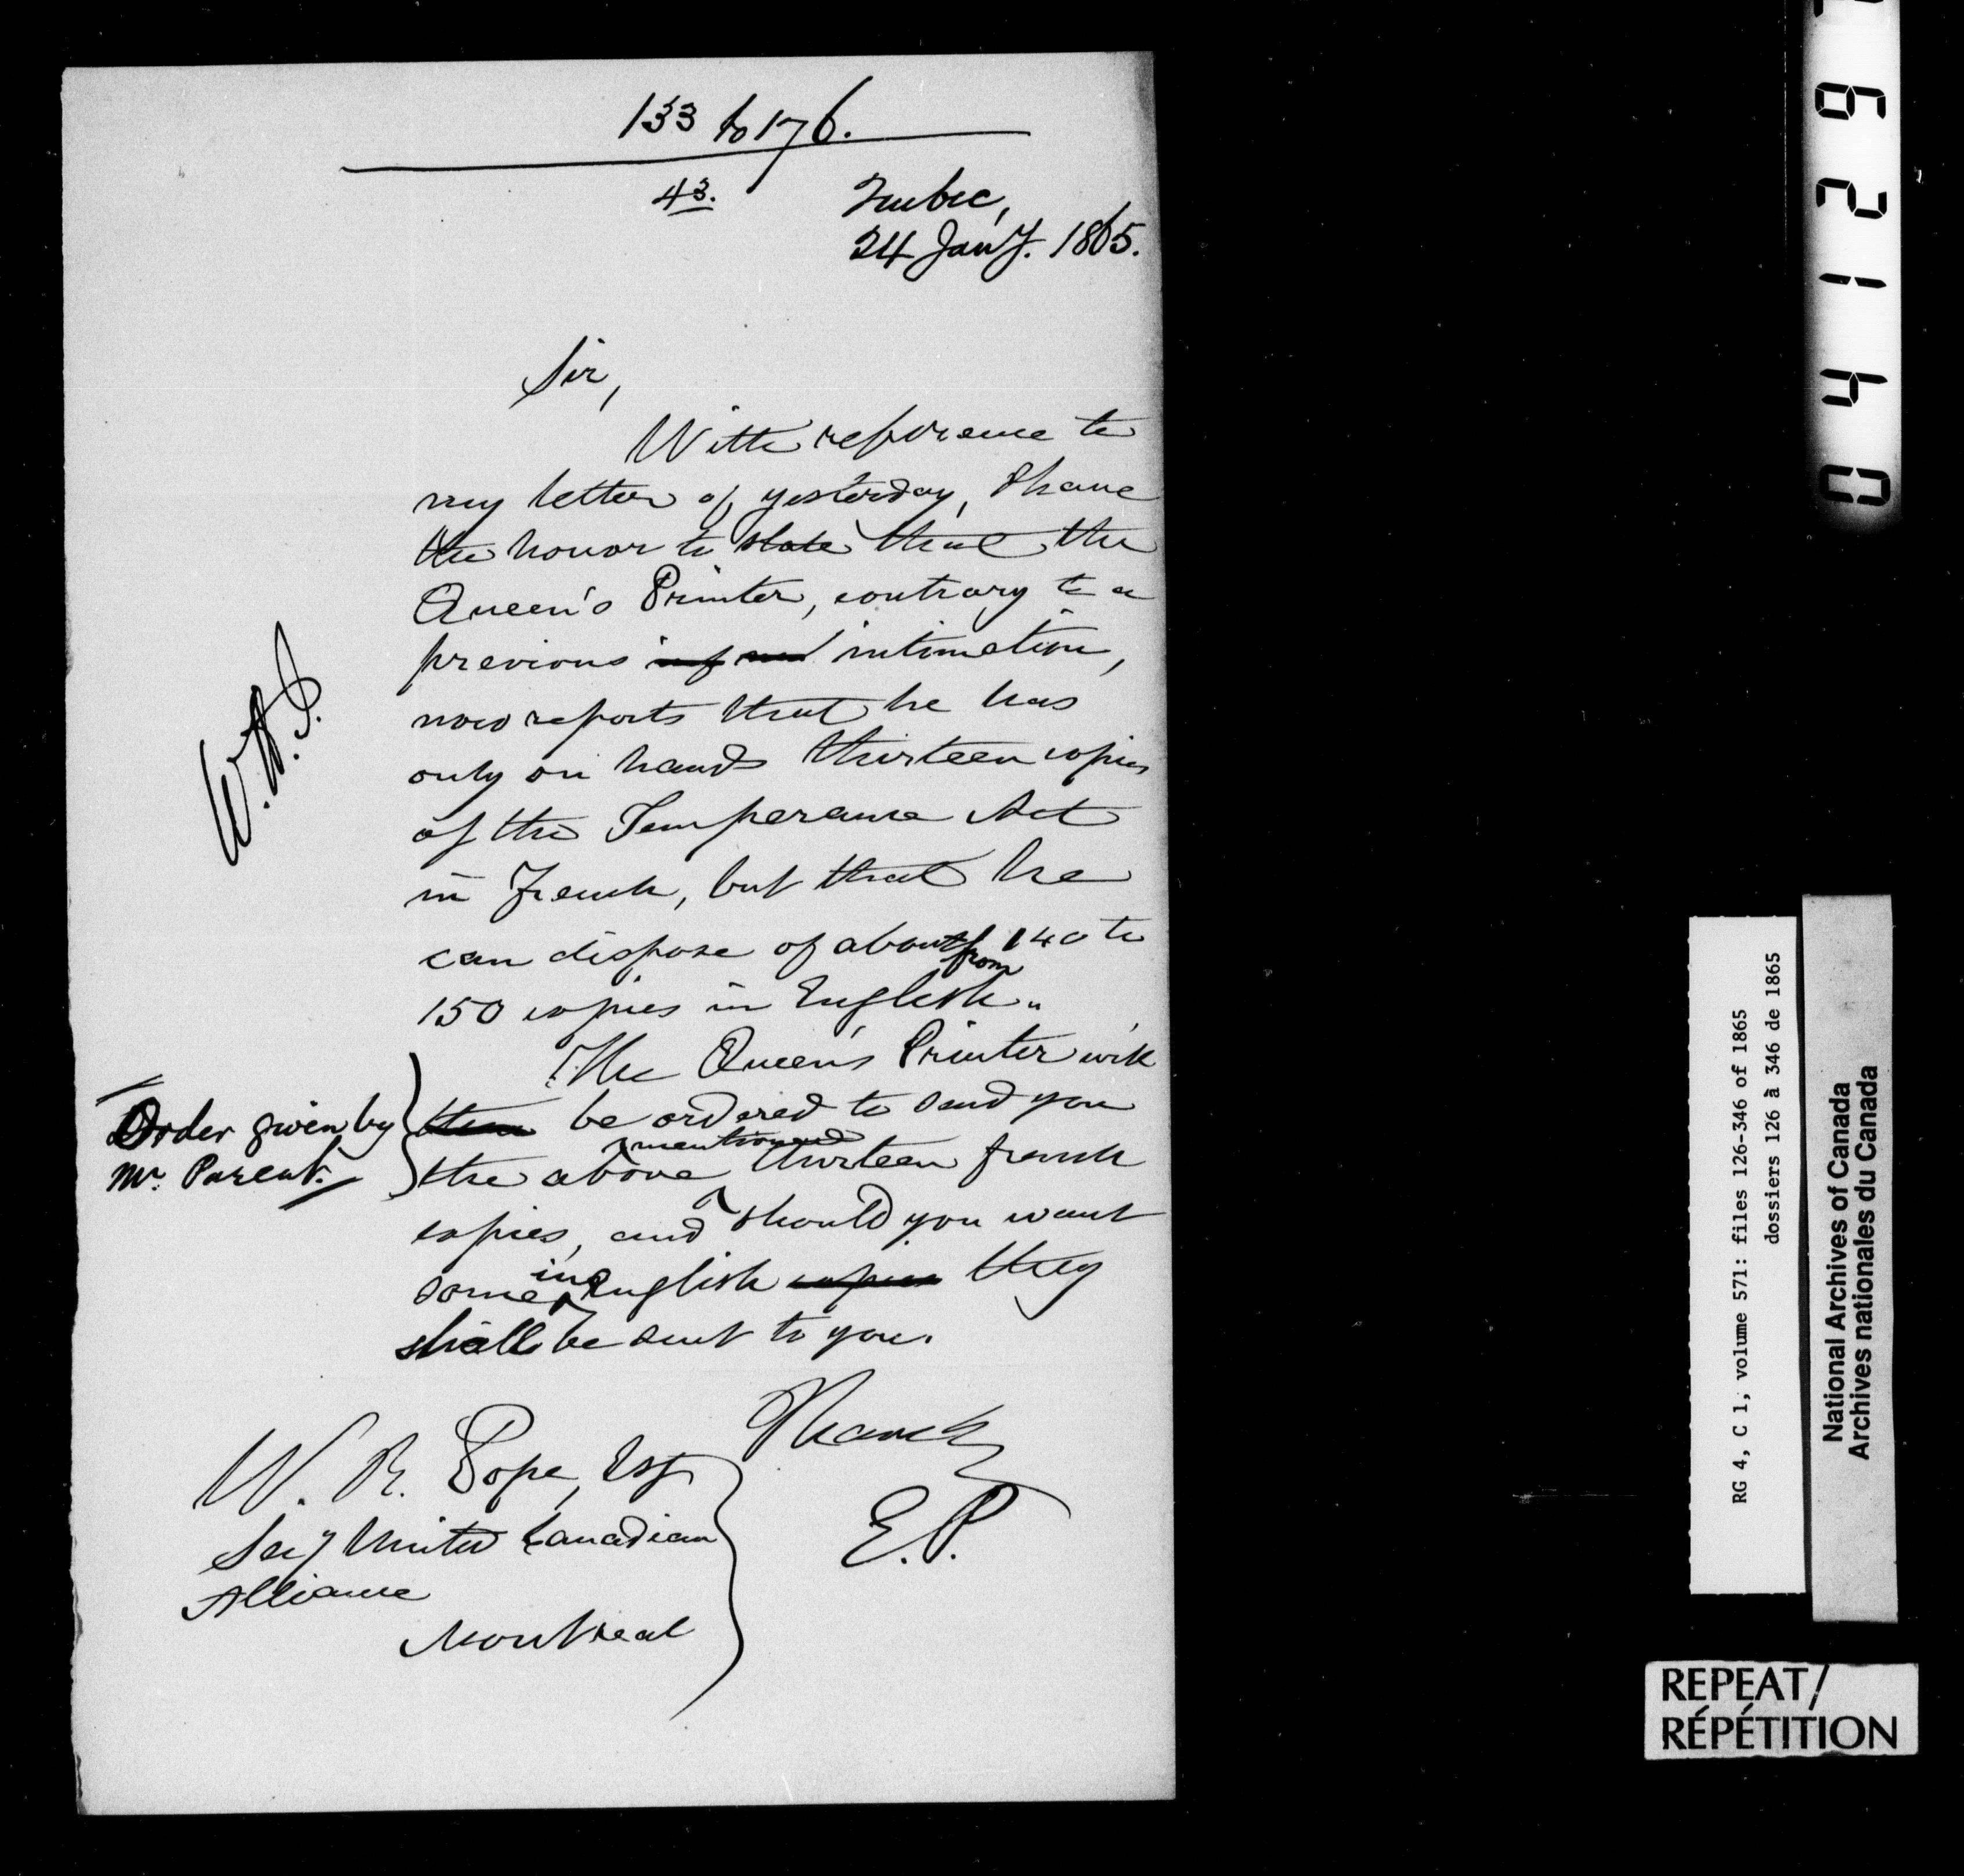 133 to 176.
43.
Quebec,
24 Jany. 1865.
Sir,
With reference to
my letter of yesterday, I have
the honor to state that the
Queen's Printer, contrary to a
previous intimation,
now reports that he has
only on hands thirteen copies
of the Temperance Act
in French, but that he
can dispose of about from 140 to
150 copies in English.
The Queen's Printer will
then be ordered to send you
the above mentioned thirteen french
copies, and should you want
some in English copies they
shall be sent to you.
Order given by
Mr. Parent.
E.P.
W. R. Pope, Esq
Secy United Canadian
Alliance
Montreal
RG 4, C 1, volume 571: files 126-346 of 1865
dossiers 126 à 346 de 1865
National Archives of Canada
Archives nationales du Canada
REPEAT/
RÉPÉTITION